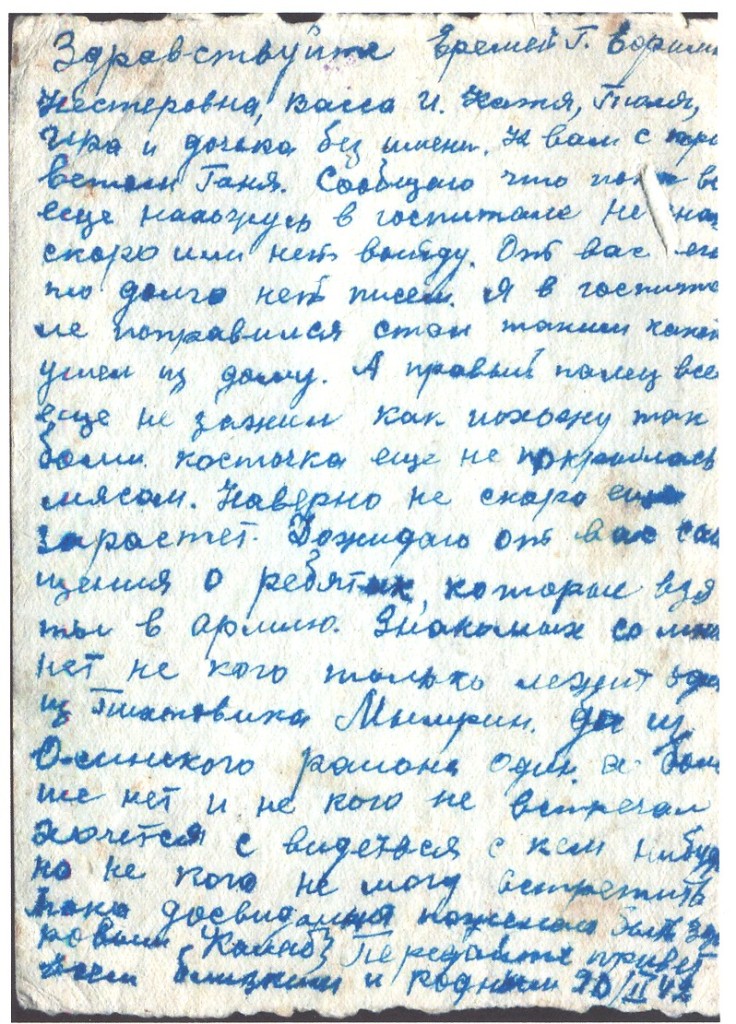 Здравствуйте Еремей Г.
Нестеровна, Васса И. Катя, Толя,
Ира и дочка без имени. К вам с при
ветом Ганя. Сообщаю что
еще нахожусь в госпитале не
скоро или нет выйду. От вас
то долго нет писем. Я в госпита
ле поправился стал таким каким
ушел из дому. А правый палец все
еще не зажил как похожу так
боли. косточка еще не покрылась
мясом. Наверно не скоро еще
зарастет. Дожидаю от вас соб
щения о ребятах, которые взя
ты в армию. Знакомых со мной
нет не кого только лежит один
из Мымрин. Да из
Осинского района один. а боль
ше нет и не кого не встречал
хочется с видеться с кем нибудь
но не кого не могу встретить
пока досвидания пожелаю быть здо
ровыми Передайте привет
всем близким и родным 20/II 42